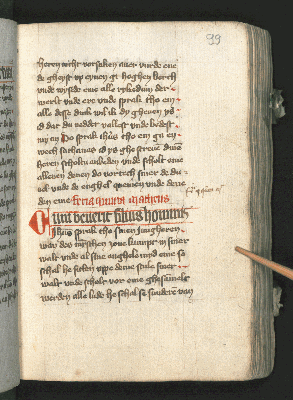 99
heren nicht vorsaken auer vurde one
de gheyst vp eynen gar hoghen berch
vnde wysede eme alle rykedum der
werlt vnde ere vnde sprak tho em
alle desse dink wil ik dy gheuen ys
id dat du nedder vallest vnde bedest
my an Do sprak ihus tho em ga en
wech sathanas id ys ghescreuen dinen
heren schaltu anbeden vnde scholt eme
allenen denen do vorleth siner de du
uel vnde de enghel quemen vnde dene
den eme feria quinta matheus
Cum venerit filius hominis
Ihus sprak tho sinen iungheren
wan der mynschen sone kumpt in siner
walt vnde al sine enghele myd eme so
schal he sitten vppe deme stule siner
walt vnde scholt vor eme ghesamelt
werden alle lude he schal se sunderen van